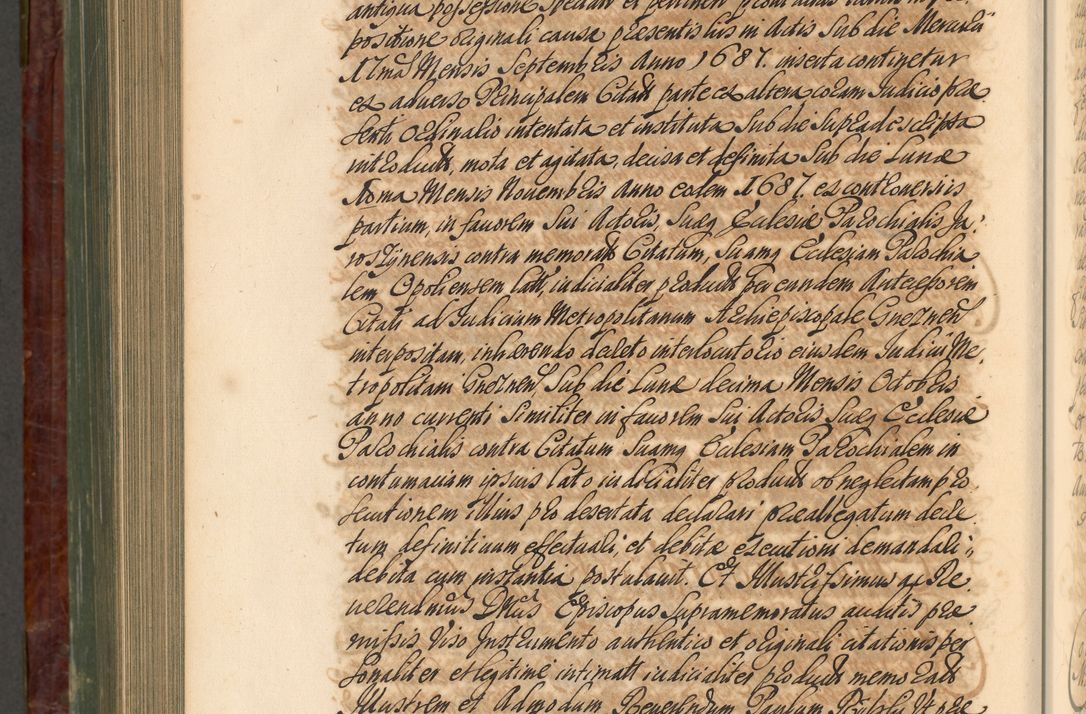 antiqua possessione spectan et pertinen
positione originali causa præsentis his in Actis Sub die Mercurii
17ma Mensis Septembris Anno 1687. inserta continetur
ex adverso Principalem Citati parte ex altera coram Iudicio præ
senti Ordinario intentata et instituta Sub die Supradescripta
introducta, mota et agitata, decisa et definita Sub die Lunæ
Mensis Novembris Anno eodem 1687. ex controversiis
partium, in favorem Sui Actoris, Suæq Ecclesiæ Parochialis Ja-
contra memorat Citatum, Suamq Ecclesiam Parochia
lem Opoliensem lati, iudicialiter product per eundem Antecessorem
Citati ad Iudicium Metropolitanum Archiepiscopale Gneznen
interpositam, inhærendo decreto interlocutorio eiusdem Iudicii Me-
tropolitani Gneznen Sub die Lunæ decima Mensis Octobris
anno currenti Similiter in favorem Sui Actoris Suæq Ecclesiæ
Parochialis contra Citatum Suamq Ecclesiam Parochialem in
contumaciam ipsius lato iudicialiter product ob neglectam pro
secutionem illius pro desertata declarari præallegatum decre
tum definitivum effectuali, et debitæ executioni demandari
debita cum instantia postulavit. Et Illustrissimus ac Re
verendmus Dnus Episcopus Supramemoratus auditis præ
missis, Viso Instrumento authentico et originali citationis per
sonaliter et legitime intimatt iudicialiter product memorat
Illustrem et Admodum Reverendum Paulum